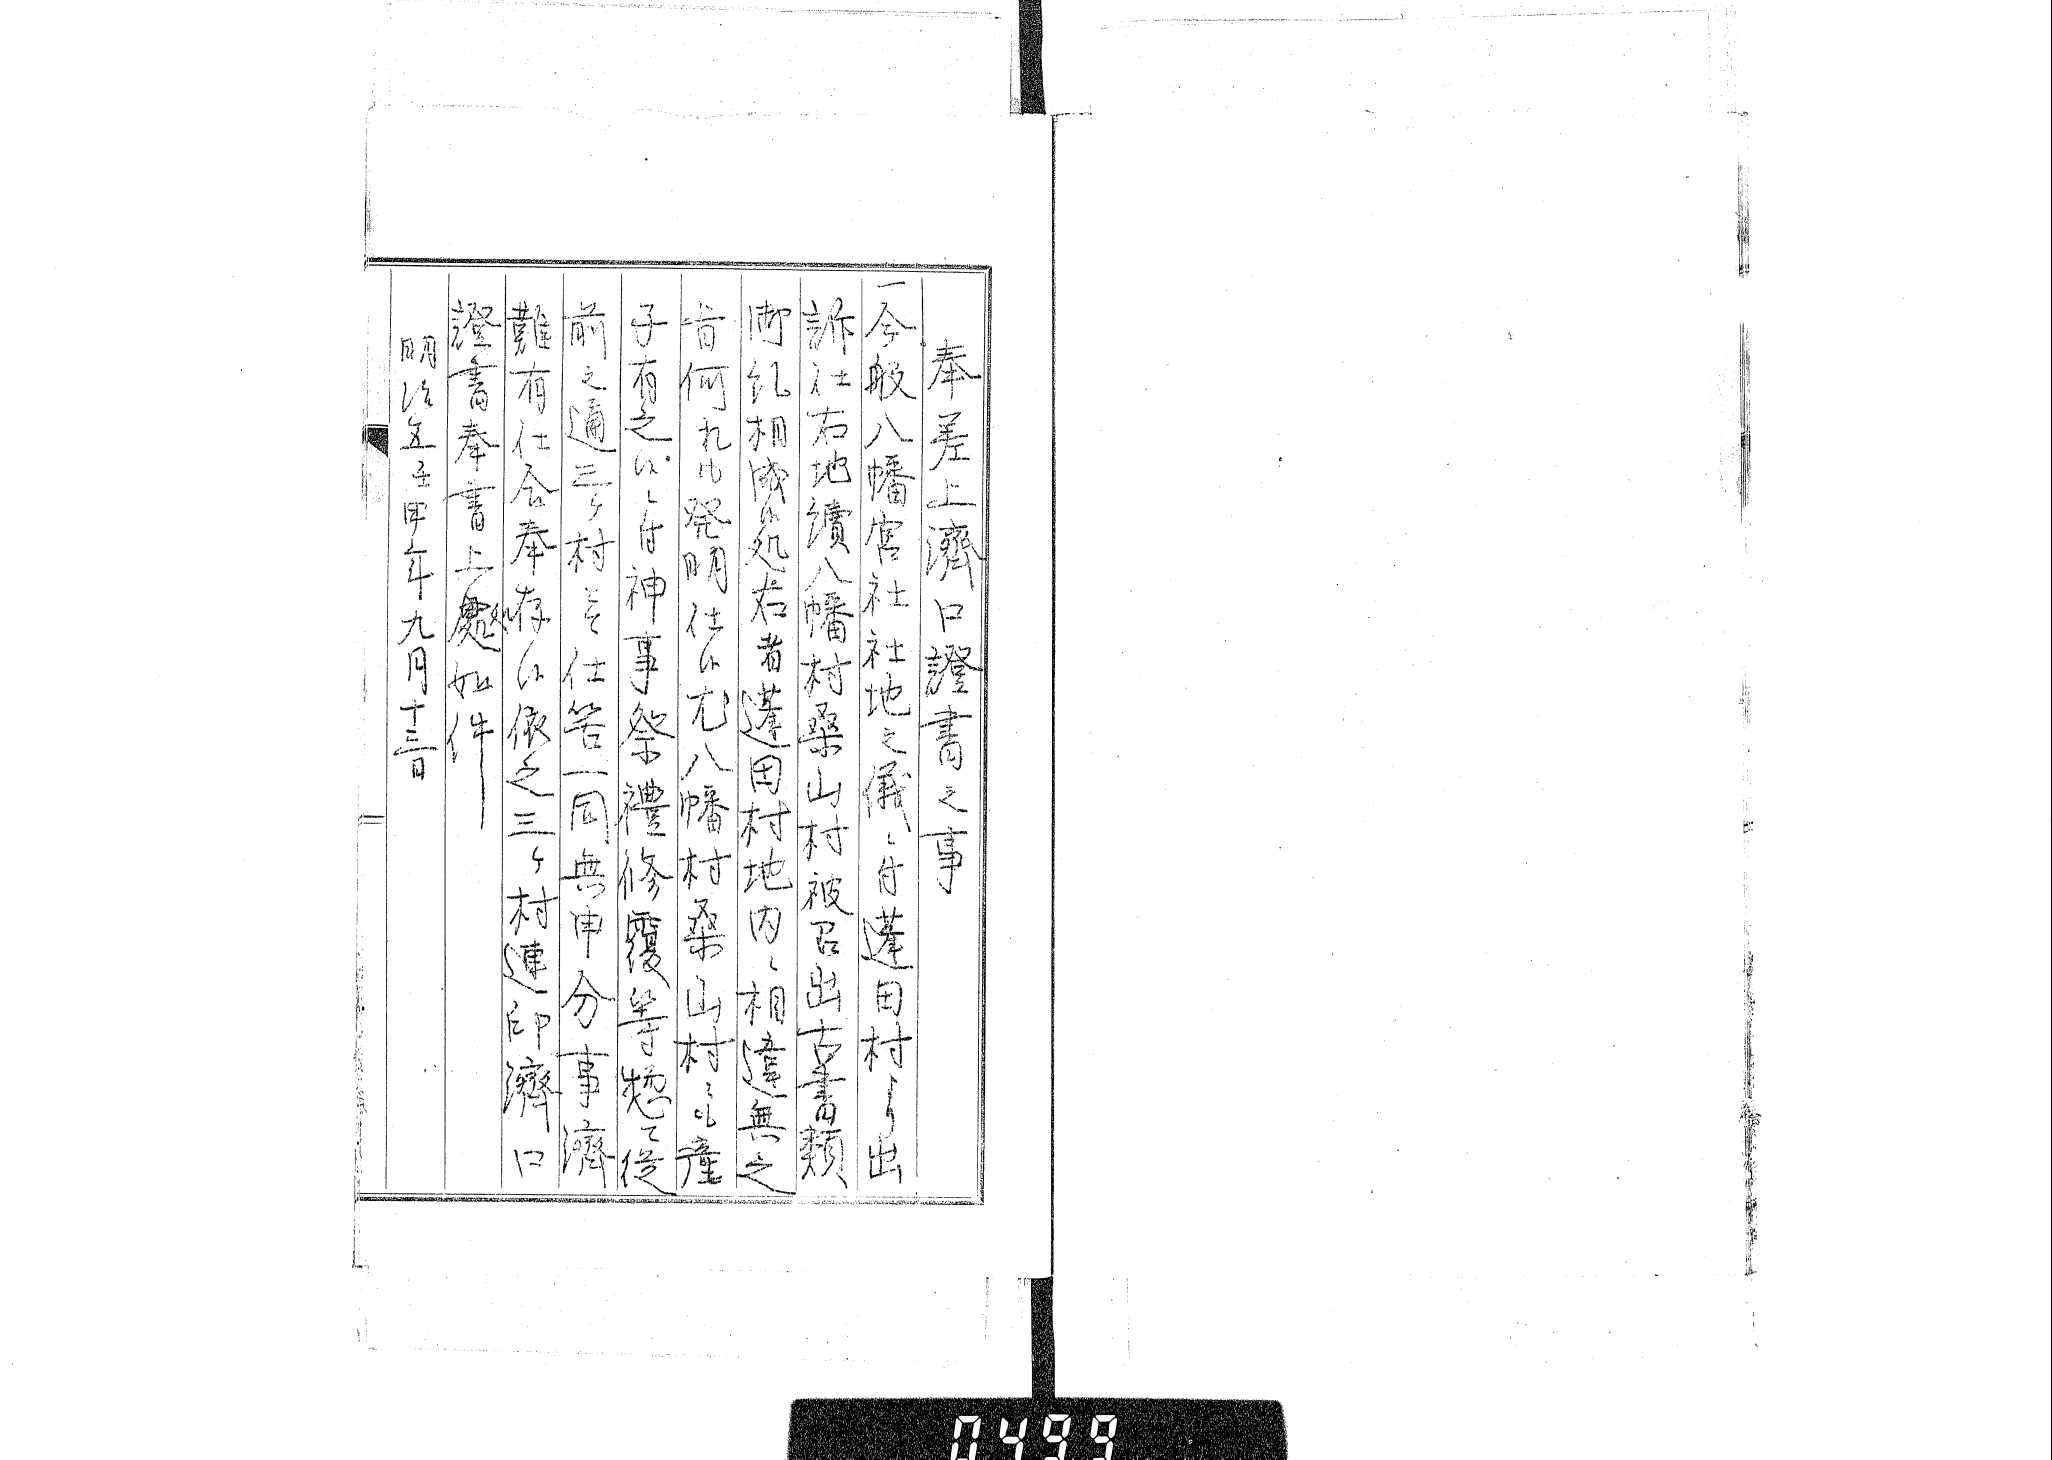 奉差上濟口證書之事
一今般八幡宮社社地之儀ニ付蓬田村より出
訴仕右地續八幡村桑山村被召出古書類
御糺相成候処右者蓬田村地内ニ相違無之
旨何れも発明仕候尤八幡村桑山村ニも産
子有之候ニ付神事祭禮修覆等惣て従
前之通三ヶ村ニて仕筈一同無申分事濟
難有仕合奉存候依之三ヶ村連印濟口
證書奉書上處如件
明治五壬申年九月十三日
0499